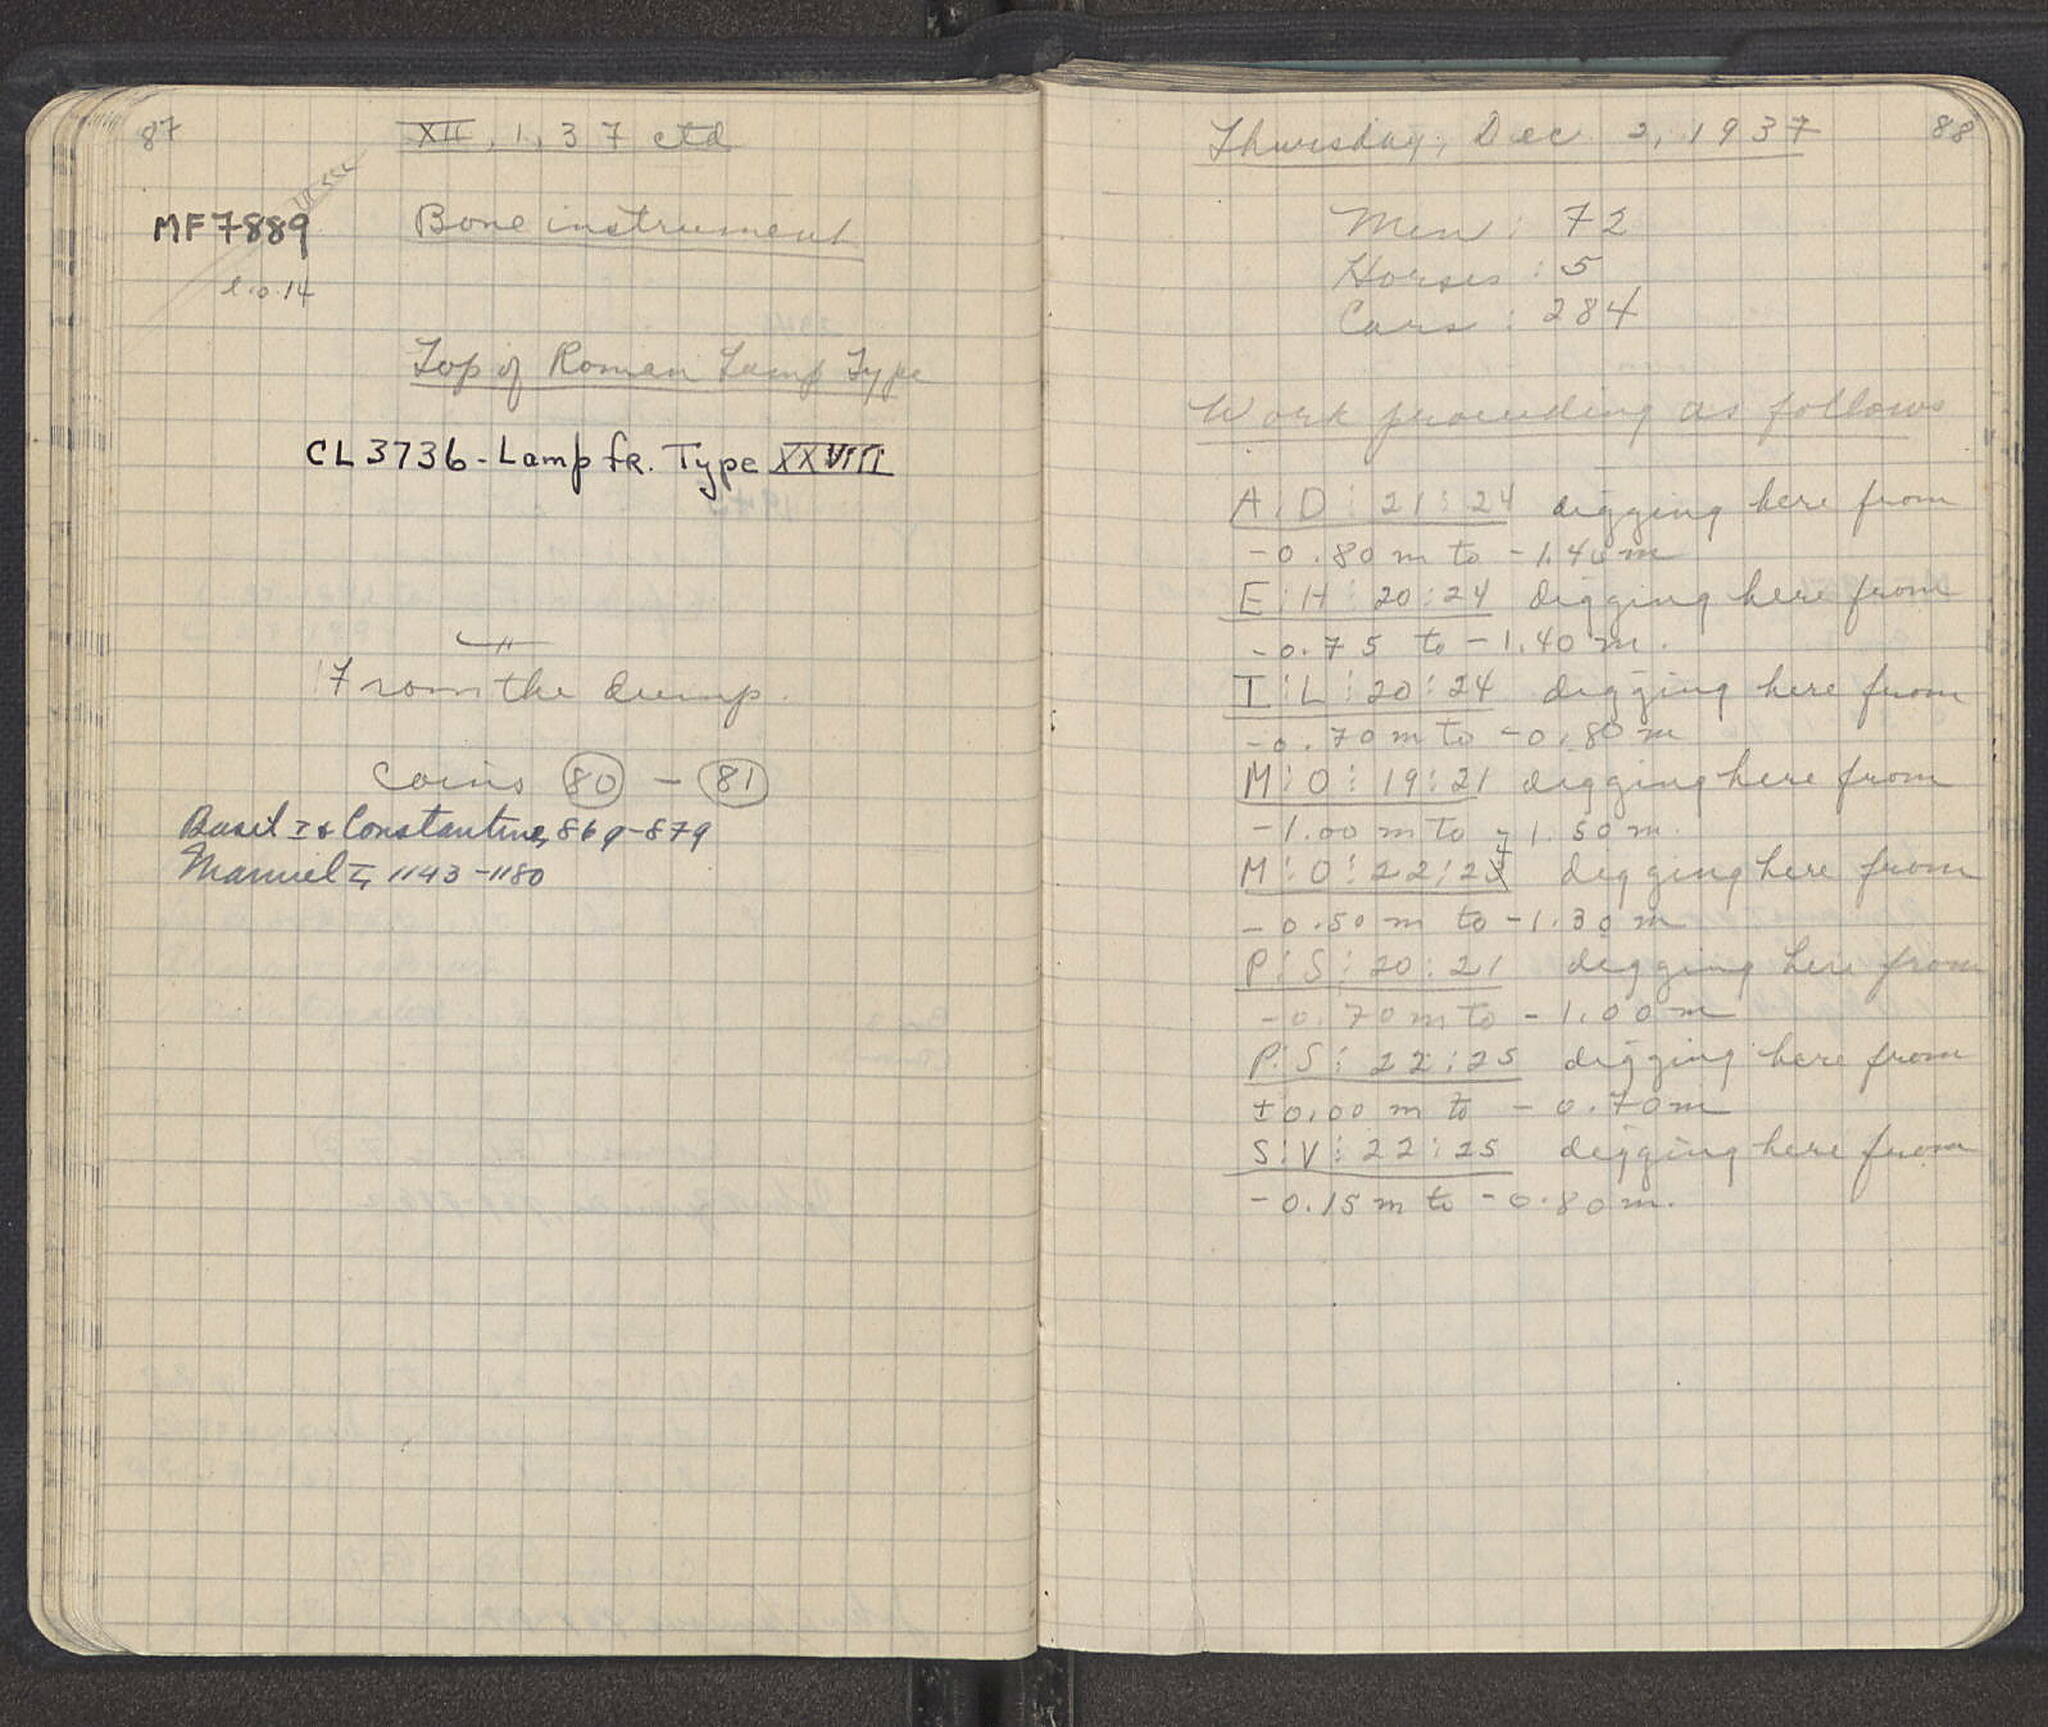 87
XII, 1, 37 ctd
MF7889
Bone instrument
l.o.14
Top of Roman Lamp Type
CL3736 - Lamp fr. Type XXVIII
From the dump.
Coins 80 - 81
Basil I & Constantine, 869-879
Manuel I, 1143-1180
Thursday, Dec 2, 1937
88
Men: 72
Horses: 5
Cars: 284
Work proceeding as follows
A:D:21:24 digging here from
-0.80 m to -1.40 m
E:H:20:24 digging here from
-0.75 to -1.40 m.
I:L:20:24 digging here from
-0.70 m to -0.80 m
M:O:19:21 digging here from
-1.00 m to -1.50 m.
M:O:22:24 digging here from
-0.50 m to -1.30 m
P:S:20:21 digging here from
-0.70 m to -1.00 m
P:S:22:25 digging here from
±0.00 m to -0.70 m
S:V:22:25 digging here from
-0.15 m to -0.80 m.